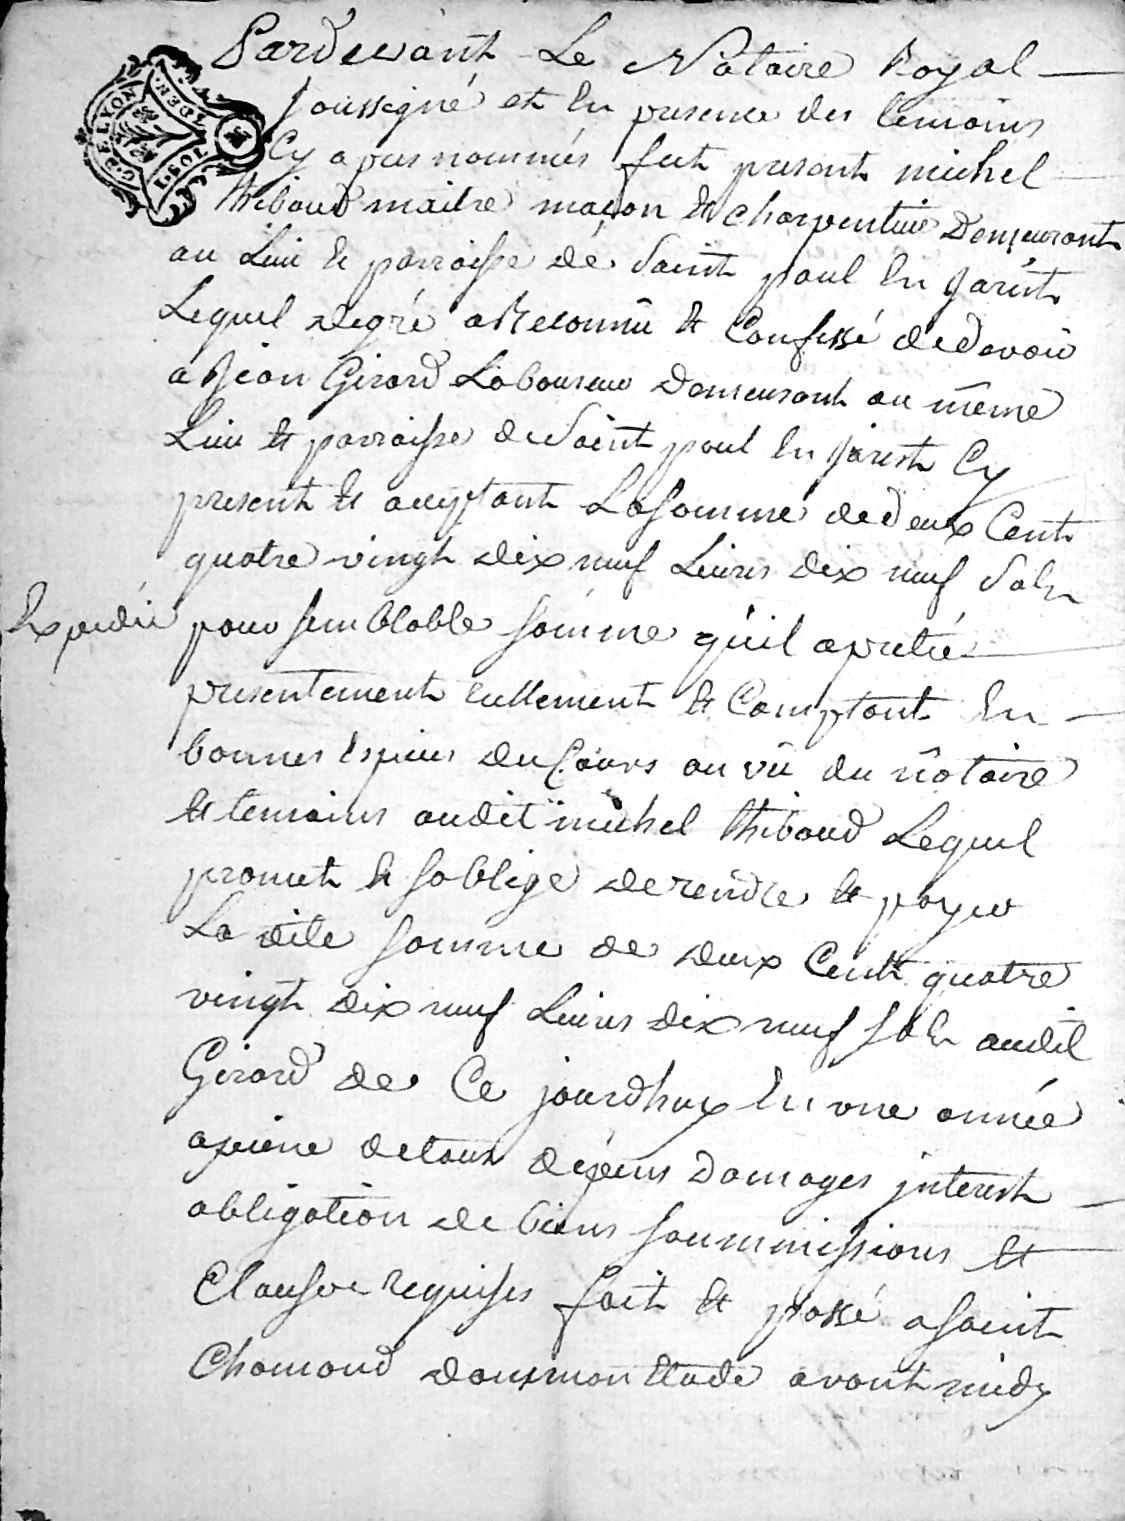 Pardevant Le Notaire Royal
soussigné et En presence des temoins
Cy apres nommés fut present michel
thibaud maitre maçon Et charpentier Demeurant
au Lieu Et parroisse de Saint paul En Jarest
Lequel degré a Reconnu Et Confessé dedevoir
a Jean Girard Laboureur Demeurant au même
Lieu Et parroisse de Saint paul En jarest Cy
present Et acceptant La somme de deux Cent
quatre vingt dix neuf Livres dix neuf Sols
Expedié
pour semblable somme qu'il a preté
presentement reellement Et Comptant En
bonnes Especes du Cours au vû du nôtaire
Et temoins audit michel thibaud Lequel
promet Et soblige de rendre Et payer
La dite somme de deux Cent quatre
vingt dix neuf Livres dix neuf sols audit
Girard de Ce jourdhuy En une année
apeine detous dépens Domages jnterest
obligation de biens soummissions Et
Clauses requises fait Et passé a saint
Chamond dans mon Etude avant midy
G. DE LYON
1. SOL 4. DEN.